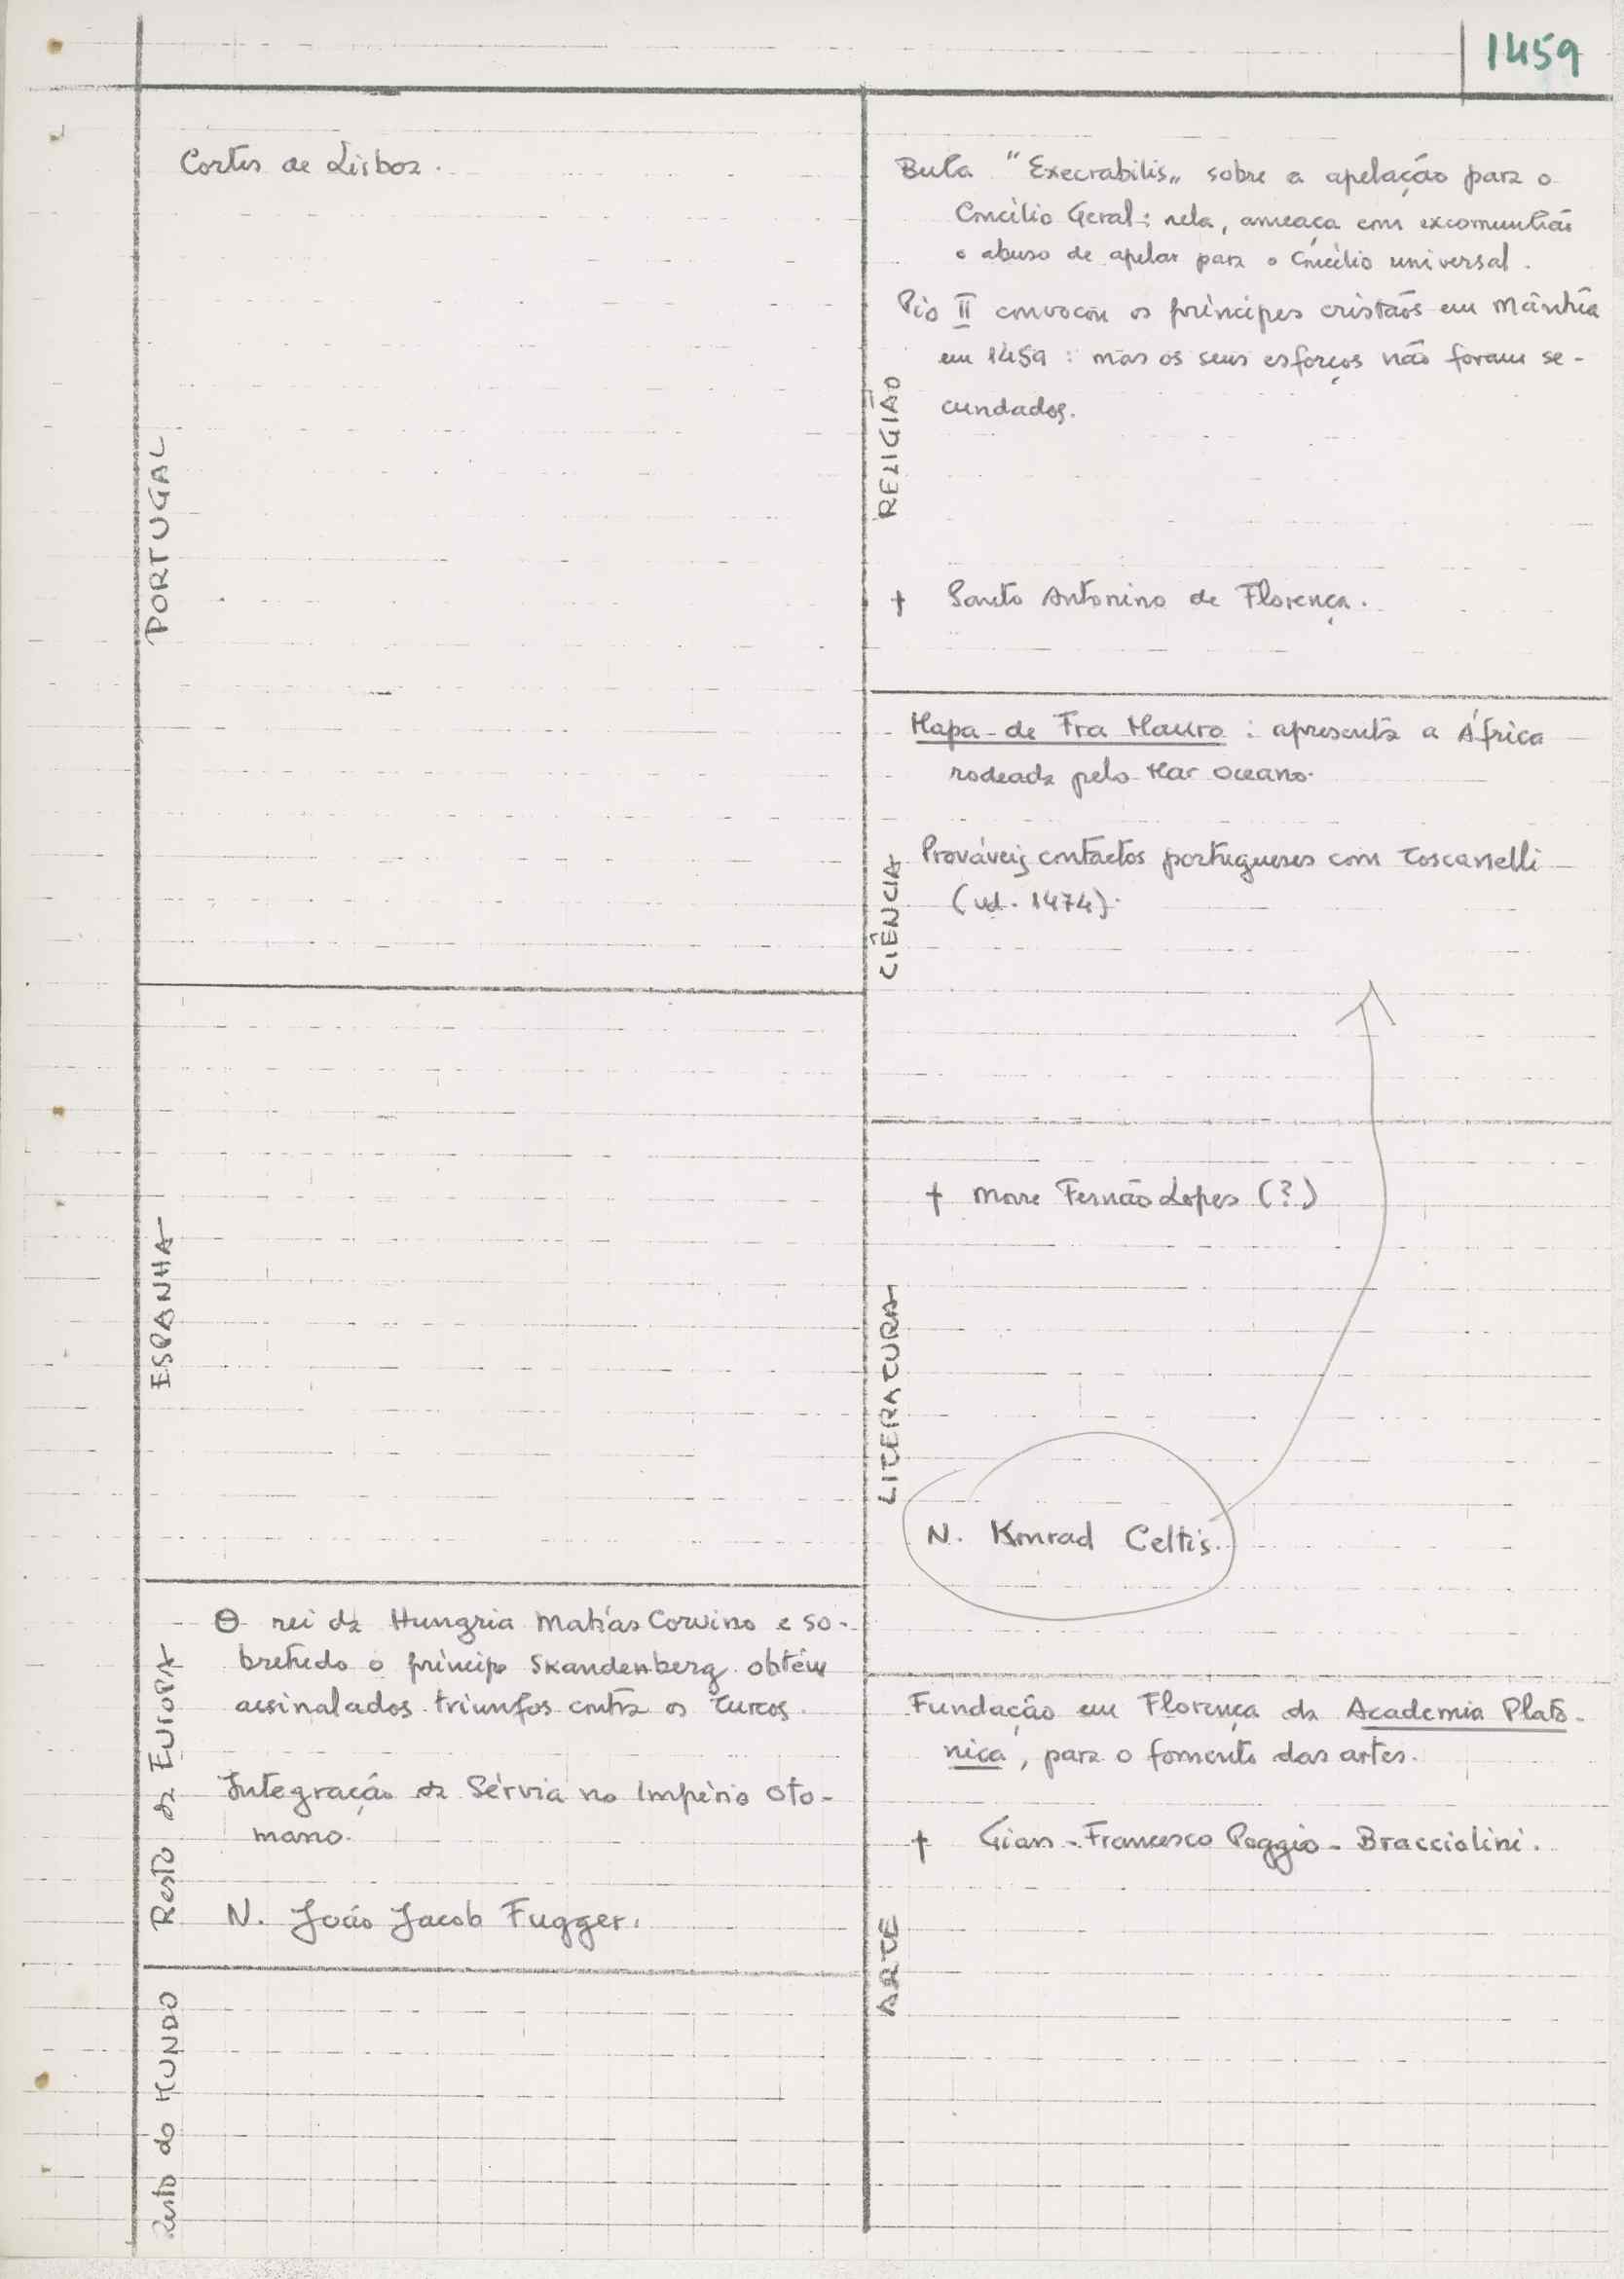 1459
PORTUGAL
Cortes de Lisboa.
ESPANHA
Resto da Europa
O rei da Hungria Matias Corvino e so-
bretudo o príncipe Skandenberg obtém
assinalados triunfos contra os Turcos.
Integração da Sérvia no Império Oto-
mano.
N. João Jacob Fugger.
Resto do MUNDO
RELIGIÃO
Bula "Execrabilis" sobre a apelação para o
Concílio Geral: nela, ameaça com excomunhão
o abuso de apelar para o Concílio universal.
Pio II convocou os príncipes cristãos em Mântua
em 1459: mas os seus esforços não foram se-
cundados.
† Santo Antonino de Florença.
CIÊNCIA
Mapa de Fra Mauro: apresenta a África
rodeada pelo Mar Oceano.
Prováveis contactos portugueses com Toscanelli
(vd. 1474).
LITERATURA
† Morre Fernão Lopes (?)
N. Konrad Celtis.
ARTE
Fundação em Florença da Academia Plató-
nica, para o fomento das artes.
† Gian-Francesco Poggio-Bracciolini.